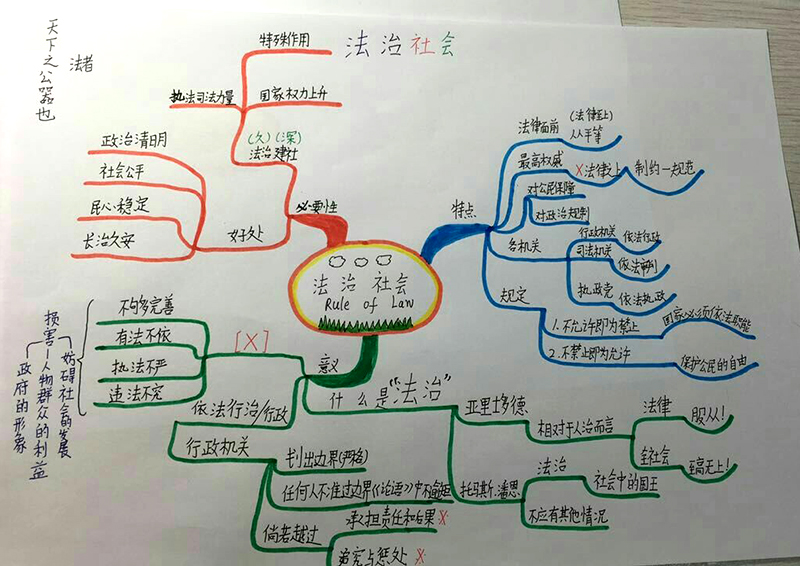 法治社会
法者
天下之公器也
法治社会
Rule of Law
必要性
(久)(深)
法治建社
执法司法力量
特殊作用
国家权力上升
好处
政治清明
社会公平
民心稳定
长治久安
特点
法律面前
(法律至上)
人人平等
最高权威
X法律之上
制约一规范
对公民保障
对政治规制
各机关
行政机关
依法行政
司法机关
依法审判
执政党
依法执政
规定
1.不允许即为禁止
国家必须依法职能
2.不禁止即为允许
保护公民的自由
意义
[X]
不够完善
有法不依
执法不严
违法不究
妨碍社会的发展
损害一人物群众的利益
政府的形象
依法行治/行政
行政机关
划出边界(严格)
任何人不准过边界《论语》中不逾矩
倘若越过
承担责任和后果X
追究与惩处X
什么是“法治”
亚里士多德
相对于人治而言
法律
服从!
全社会
至高无上!
托马斯·潘恩
法治
社会中的国王
不应有其他情况